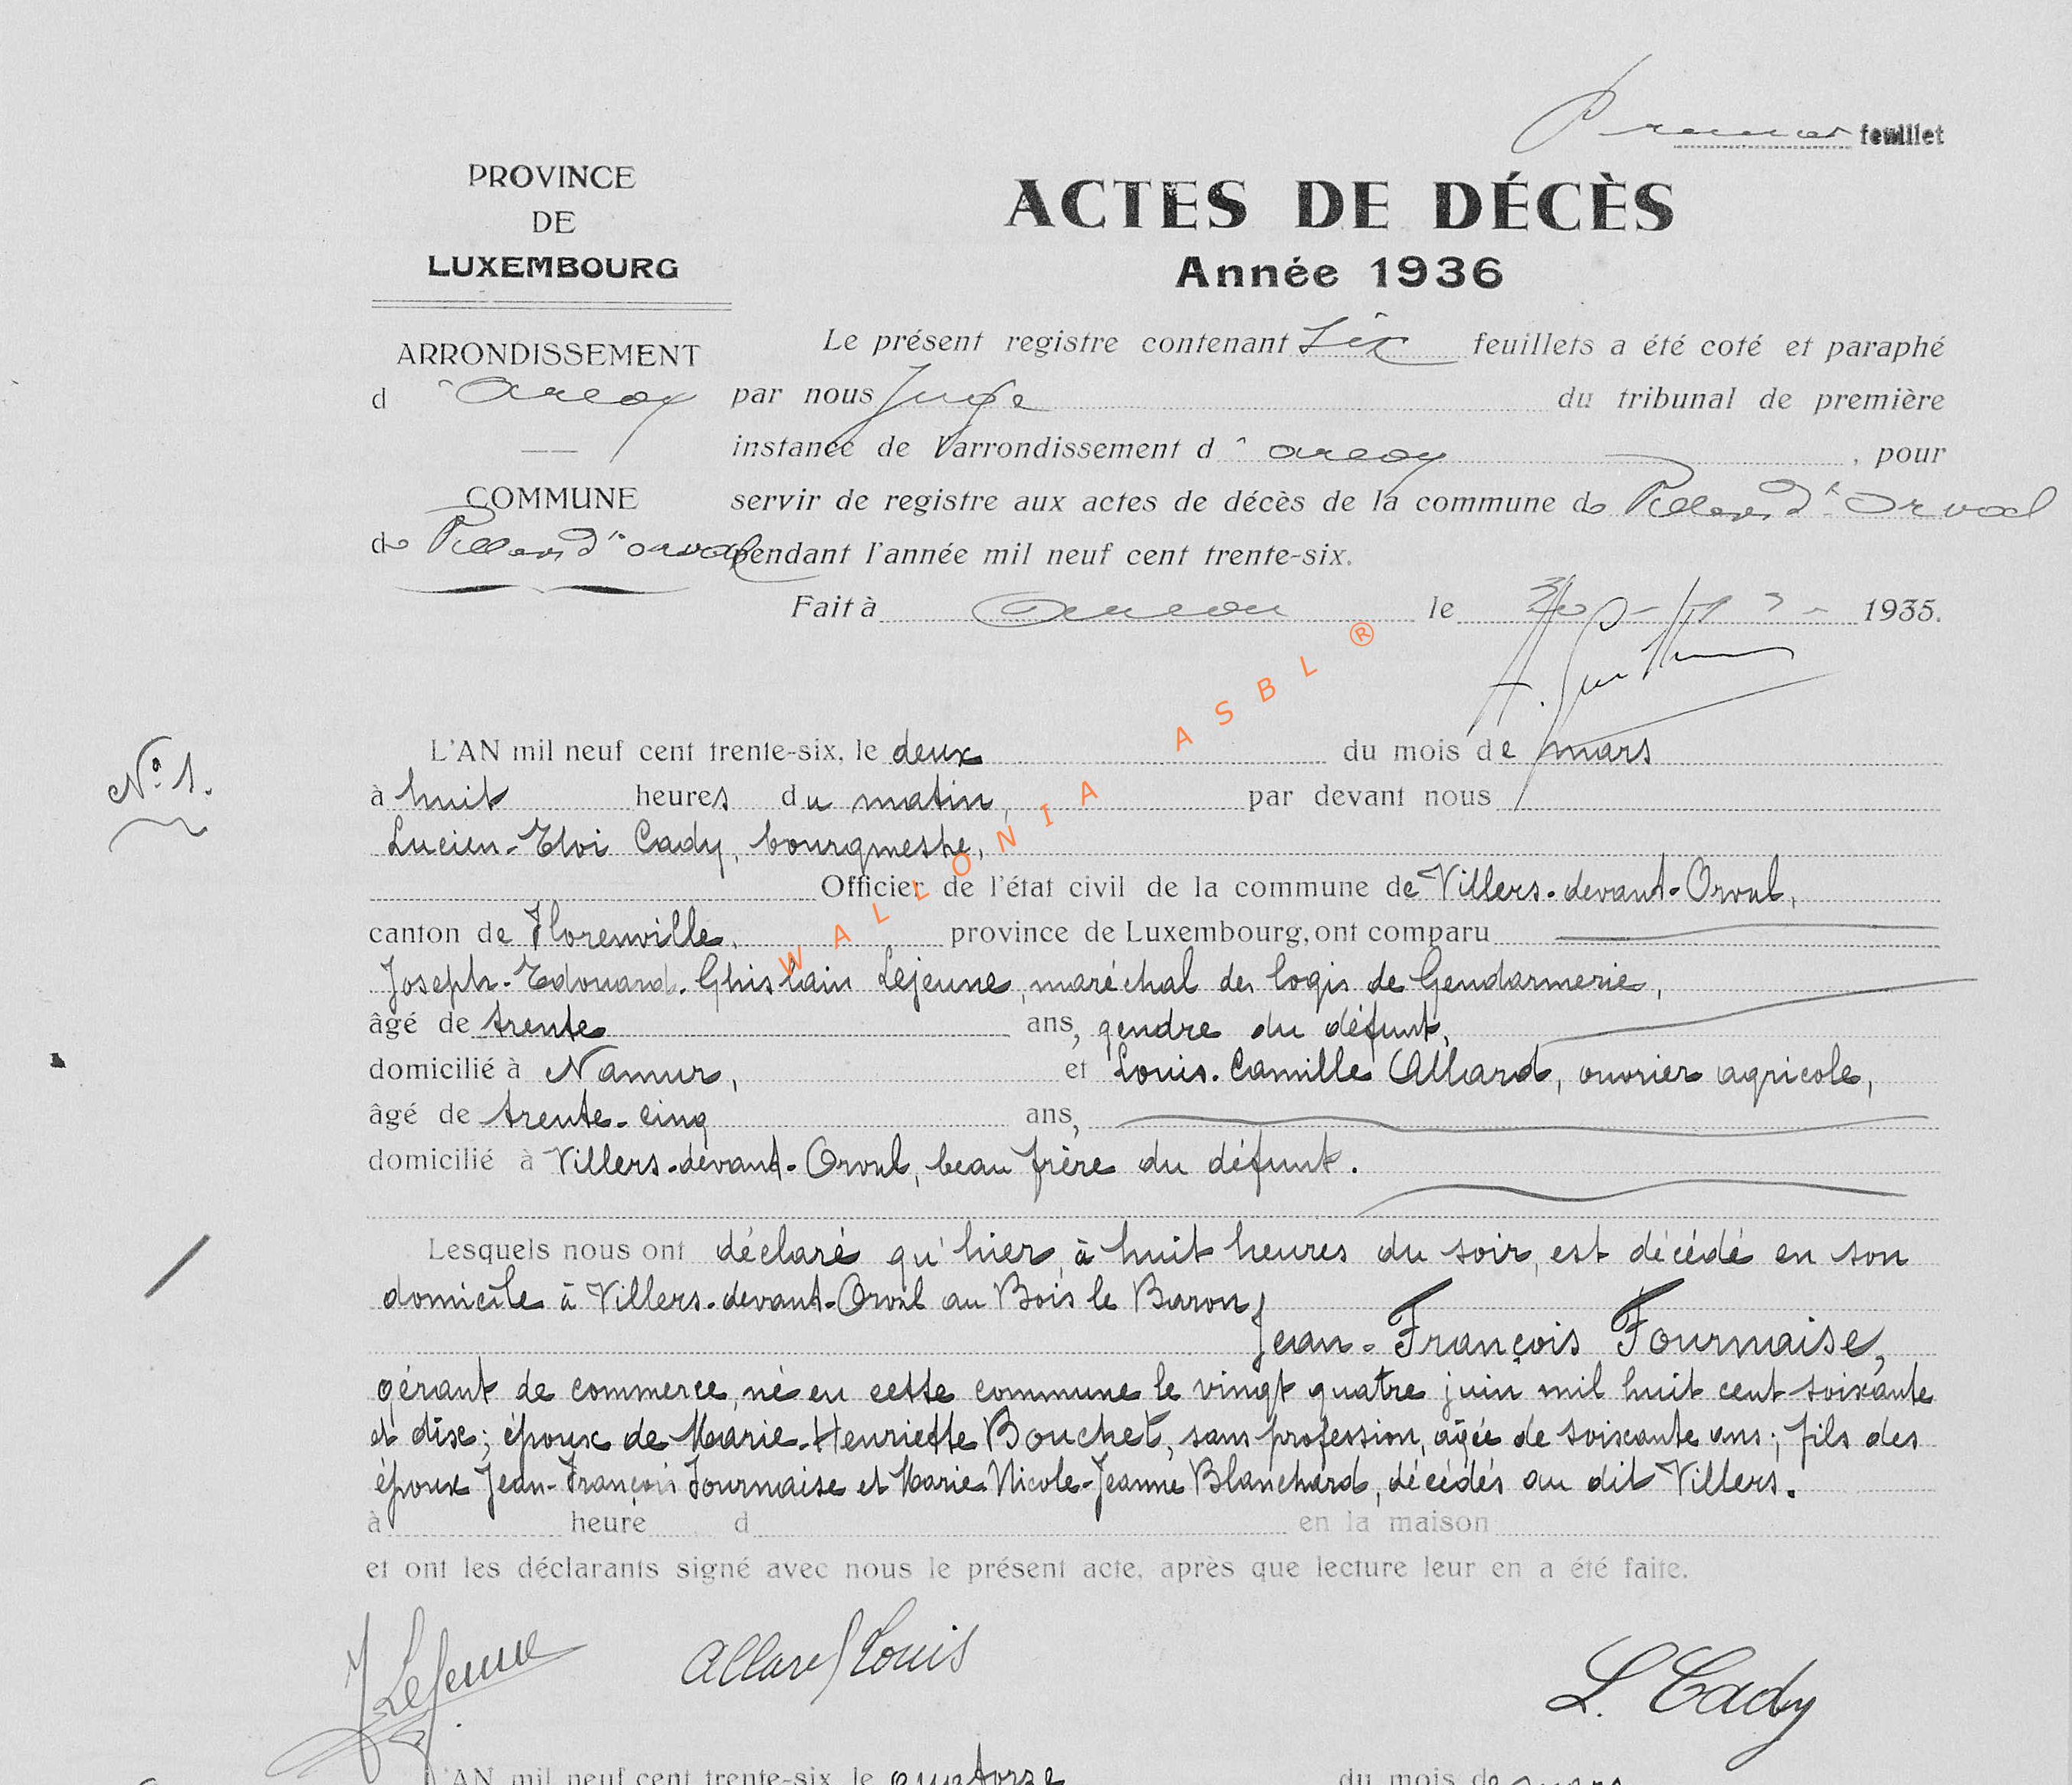 Premier feuillet
PROVINCE
DE
LUXEMBOURG
ACTES DE DÉCÈS
Année 1936
ARRONDISSEMENT
d'Arlon
COMMUNE
de Villers d' Orval
Le présent registre contenant six feuillets a été coté et paraphé
par nous Juge du tribunal de première
instance de l'arrondissement d' Arlon, pour
servir de registre aux actes de décès de la commune de Villers d' Orval
pendant l'année mil neuf cent trente-six.
Fait à Arlon le 1935.
WALLONIA ASBL ®
N° 1.
L'AN mil neuf cent trente-six, le deux du mois de mars
à huit heures du matin, par devant nous
Lucien-Eloi Cady, bourgmestre,
Officier de l'état civil de la commune de Villers-devant-Orval,
canton de Florenville, province de Luxembourg, ont comparu
Joseph-Edouard-Ghislain Lejeune, maréchal des logis de Gendarmerie,
âgé de trente ans, gendre du défunt,
domicilié à Namur, et Louis-Camille Allard, ouvrier agricole,
âgé de trente-cinq ans,
domicilié à Villers-devant-Orval, beau frère du défunt.
Lesquels nous ont déclaré qu'hier, à huit heures du soir, est décédé en son
domicile à Villers-devant-Orval au Bois le Baron,
Jean-François Fournaise,
gérant de commerce, né en cette commune le vingt quatre juin mil huit cent soixante
et dix; époux de Marie-Henriette Bouchet, sans profession, âgée de soixante ans; fils des
époux Jean-François Fournaise et Marie-Nicole-Jeanne Blanchard, décédés au dit Villers.
à heure d en la maison
et ont les déclarants signé avec nous le présent acte, après que lecture leur en a été faite.
J Lejeune Allard Louis L. Cady
L'AN mil neuf cent trente-six, le quatorze du mois de mars